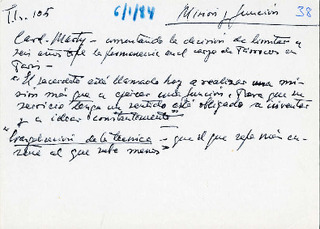 T.I. 105 6/1/84 Misión y función 38
Card. Marty - comentando la decisión de limitar a
seis años la permanencia en el cargo de Párrocos en
París -
"El sacerdote está llamado hoy a realizar una mi-
sión más que a ejercer una función. Para que su
servicio tenga un sentido está obligado a inventar
y a idear constantemente"
de la técnica - que el que sepa más en-
señe al que sabe menos"